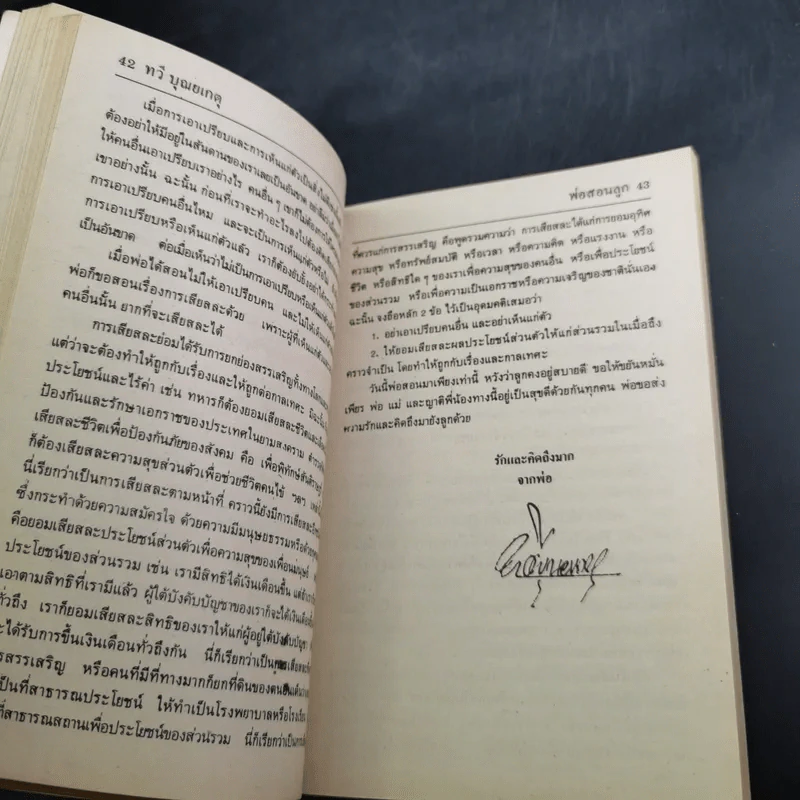 42 ทวี บุณยเกตุ
เมื่อการเอาเปรียบและการเห็นแก่ตัวเป็นสิ่งไม่ดี
ต้องอย่าให้มีอยู่ในสันดานของเราเลยเป็นอันขาด
ให้คนอื่นเอาเปรียบเราอย่างไร คนอื่นๆ เขาก็ไม่ต้องการ
เขาอย่างนั้น ฉะนั้น ก่อนที่เราจะทำอะไรลงไปต้อง
การเอาเปรียบคนอื่นไหม และจะเป็นการเห็นแก่ตัวหรือไม่
การเอาเปรียบหรือเห็นแก่ตัวแล้ว เราก็ต้องยับยั้งอย่าได้
เป็นอันขาด ต่อเมื่อเห็นว่าไม่เป็นการเอาเปรียบหรือเห็นแก่ตัว
เมื่อพ่อได้สอนไม่ให้เอาเปรียบคน และไม่ให้เห็นแก่ตัว
พ่อก็ขอสอนเรื่องการเสียสละด้วย เพราะผู้ที่เห็นแก่ตัว
คนอื่นนั้น ยากที่จะเสียสละได้
การเสียสละย่อมได้รับการยกย่องสรรเสริญทั้งทาง
แต่ว่าจะต้องทำให้ถูกกับเรื่องและให้ถูกต่อกาลเทศะ มิฉะนั้น
ประโยชน์และไร้ค่า เช่น ทหารก็ต้องยอมเสียสละชีวิต
ป้องกันและรักษาเอกราชของประเทศในยามสงคราม
เสียสละชีวิตเพื่อป้องกันภัยของสังคม คือ เพื่อพิทักษ์
ก็ต้องเสียสละความสุขส่วนตัวเพื่อช่วยชีวิตคนไข้ ฯลฯ
นี่เรียกว่าเป็นการเสียสละตามหน้าที่ คราวนี้ยังมีการเสียสละ
ซึ่งกระทำด้วยความสมัครใจ ด้วยความมีมนุษยธรรมหรือ
คือยอมเสียสละประโยชน์ส่วนตัวเพื่อความสุขของเพื่อนมนุษย์
ประโยชน์ของส่วนรวม เช่น เรามีสิทธิได้เงินเดือนขึ้น
เอาตามสิทธิที่เรามีแล้ว ผู้ใต้บังคับบัญชาของเราก็จะได้เงินเดือน
ทั่วถึง เราก็ยอมเสียสละสิทธิของเราให้แก่ผู้อยู่ใต้บังคับบัญชา
ะได้รับการขึ้นเงินเดือนทั่วถึงกัน นี่ก็เรียกว่าเป็น
รสรรเสริญ หรือคนที่มีที่ทางมากก็ยกที่ดินของตน
เป็นที่สาธารณประโยชน์ ให้ทำเป็นโรงพยาบาลหรือ
ที่สาธารณสถานเพื่อประโยชน์ของส่วนรวม นี่ก็เรียกว่าเป็น
พ่อสอนลูก 43
ที่ควรแก่การสรรเสริญ คือพูดรวมความว่า การเสียสละได้แก่การยอมอุทิศ
ความสุข หรือทรัพย์สมบัติ หรือเวลา หรือความคิด หรือแรงงาน หรือ
ชีวิต หรือสิทธิใด ๆ ของเราเพื่อความสุขของคนอื่น หรือเพื่อประโยชน์
ของส่วนรวม หรือเพื่อความเป็นเอกราชหรือความเจริญของชาตินั่นเอง
ฉะนั้น จงถือหลัก 2 ข้อ ไว้เป็นอุดมคติเสมอว่า
1. อย่าเอาเปรียบคนอื่น และอย่าเห็นแก่ตัว
2. ให้ยอมเสียสละผลประโยชน์ส่วนตัวให้แก่ส่วนรวมในเมื่อถึง
คราวจำเป็น โดยทำให้ถูกกับเรื่องและกาลเทศะ
วันนี้พ่อสอนมาเพียงเท่านี้ หวังว่าลูกคงอยู่สบายดี ขอให้ขยันหมั่น
เพียร พ่อ แม่ และญาติพี่น้องทางนี้อยู่เป็นสุขดีด้วยกันทุกคน พ่อขอส่ง
ความรักและคิดถึงมายังลูกด้วย
รักและคิดถึงมาก
จากพ่อ